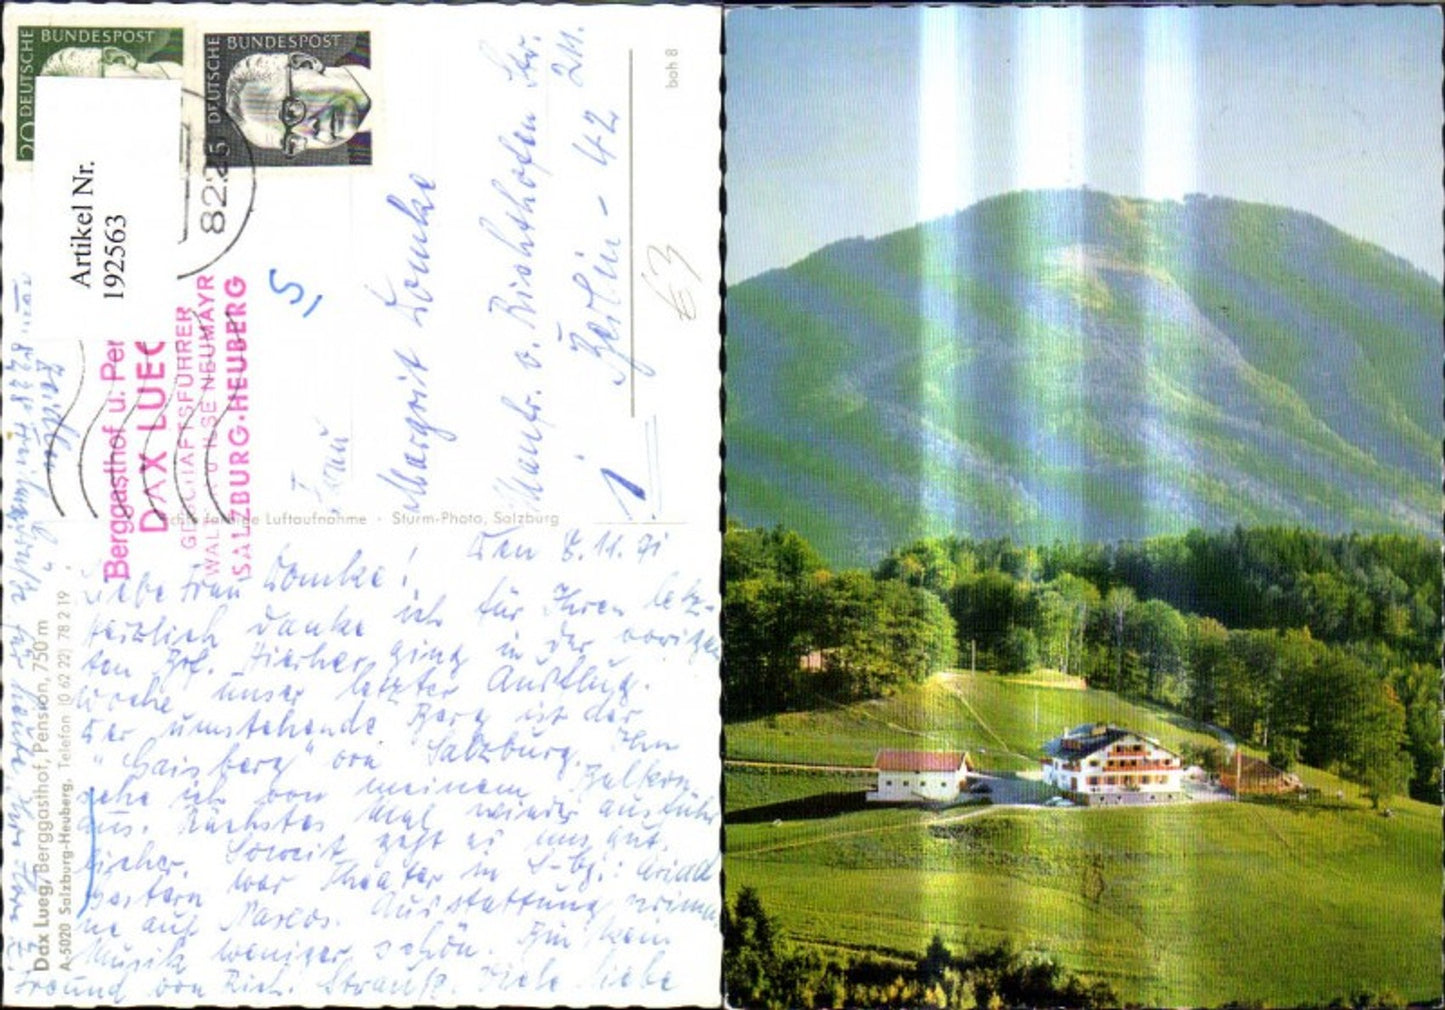 DEUTSCHE BUNDESPOST
20
DEUTSCHE BUNDESPOST
8225
Artikel Nr.
192563
Berggasthof u. Per
DAX LUEG
GESCHÄFTSFÜHRER
ILSE NEUMAYR
SALZBURG-HEUBERG
Frau
Margrit Domke
Manfr. v. Richthofen Str.
Berlin - 42
1
boh 8
€3
farbige Luftaufnahme · Sturm-Photo, Salzburg
Dax Lueg, Berggasthof, Pension, 750 m
A-5020 Salzburg-Heuberg, Telefon (0 62 22) 78 2 19
Den 8.11.71
Liebe Frau Domke!
Herzlich danke ich für Ihren letz-
ten Brf. Hierher ging in der vorigen
Woche unser letzter Ausflug.
Der umstehende Berg ist der
"Gaisberg" von Salzburg. Ihn
sehe ich von meinem Balkon
aus. Nächstes Mal wieder ausführ
licher. Soweit geht es uns gut.
Gestern war Theater in S-bg.: Ariad
ne auf Naxos. Ausstattung prima
Musik weniger schön. Bin kein
Freund von Rich. Strauß. Viele liebe